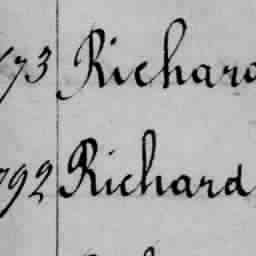 173 Richard
792 Richard